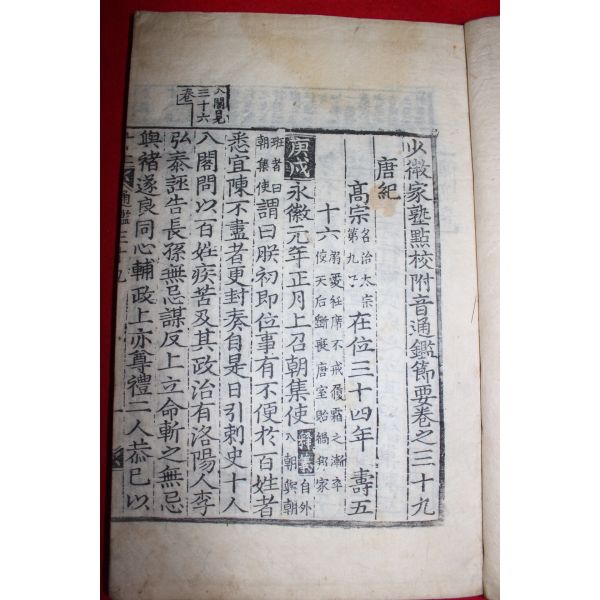 少微家塾點校附音通鑑節要卷之三十九
唐紀
高宗名治太宗第九子在位三十四年 壽五
十六溺愛衽席不戒履霜之漸卒使天后斲喪唐室貽禍邦家
庚戌永徽元年正月上召朝集使釋義自外入朝與朝
班者曰朝集使謂曰朕初即位事有不便於百姓者
悉宜陳不盡者更封奏自是日引刺史十人
入閤問以百姓疾苦及其政治有洛陽人李
弘泰誣告長孫無忌謀反上立命斬之無忌
與褚遂良同心輔政上亦尊禮二人恭己以
入閤見
三十六
卷
通鑑三十九